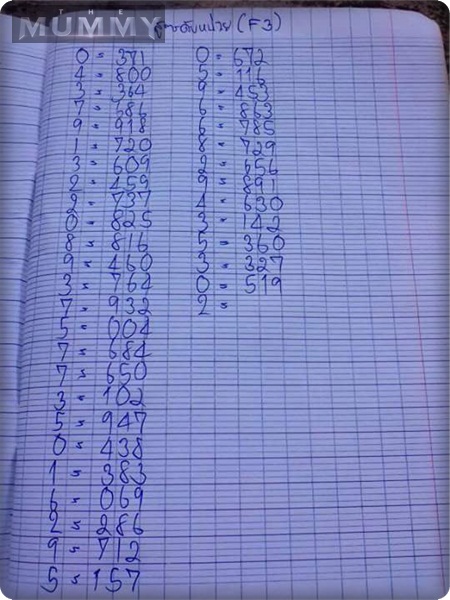 THE
MUMMY
(F3)
0 = 371
4 " 800
3 " 364
7 " 586
9 " 918
1 " 720
3 " 609
2 " 459
9 " 737
0 " 825
8 " 816
9 " 460
3 " 764
7 " 932
5 " 004
7 " 684
7 " 650
3 " 102
5 " 947
0 " 438
1 " 383
6 " 069
2 " 286
9 " 712
5 " 157
0 = 672
5 " 116
9 " 453
6 " 863
6 " 785
8 " 729
2 " 656
9 " 891
4 " 630
3 " 142
5 " 360
3 " 327
0 " 519
2 "